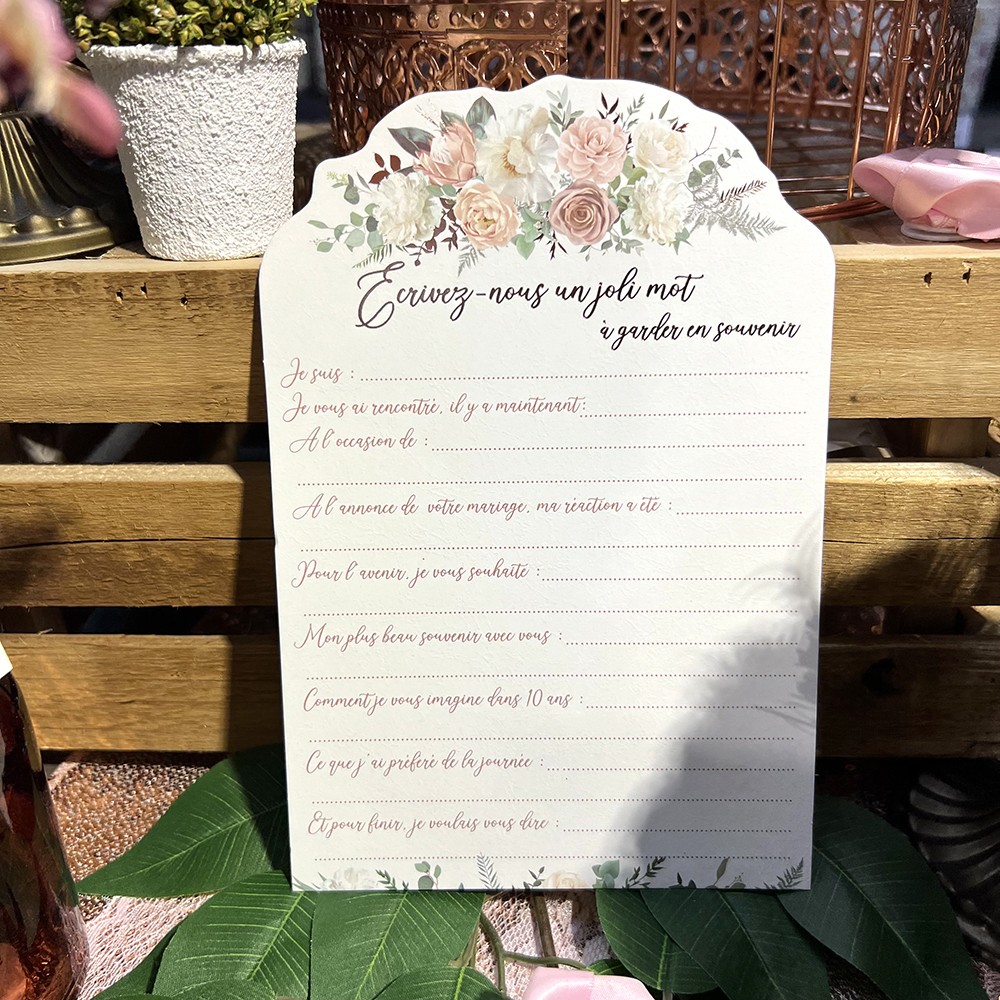 Ecrivez-nous un joli mot
à garder en souvenir
Je suis :
Je vous ai rencontré, il y a maintenant :
A l'occasion de :
A l'annonce de votre mariage, ma réaction a été :
Pour l'avenir, je vous souhaite :
Mon plus beau souvenir avec vous :
Comment je vous imagine dans 10 ans :
Ce que j'ai préféré de la journée :
Et pour finir, je voulais vous dire :